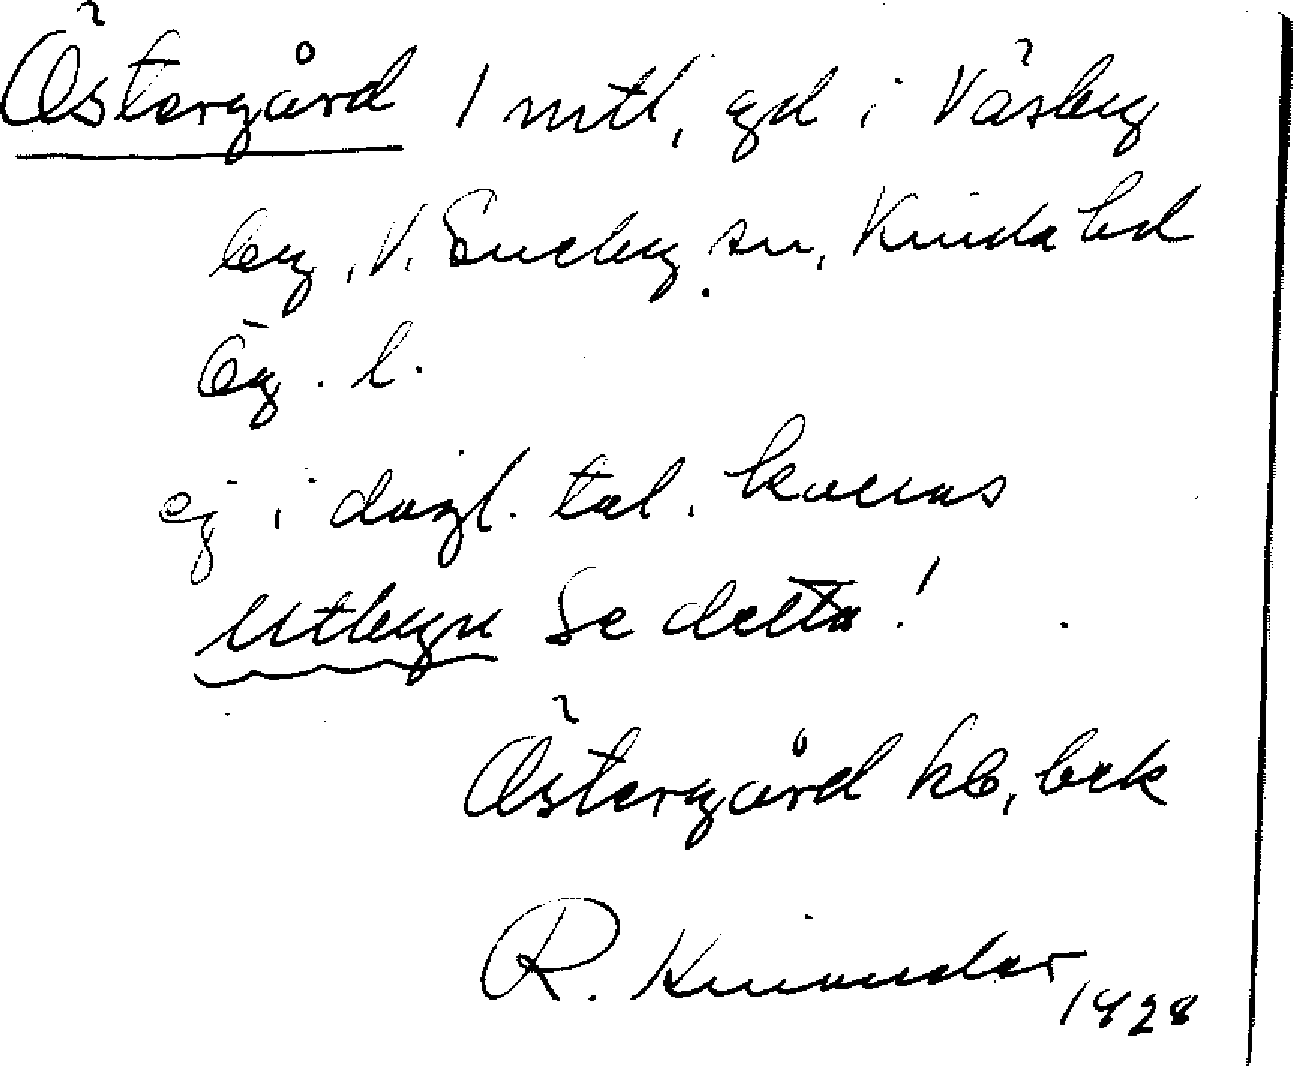 Östergård 1 mtl, gd i Väsby
by, V. Eneby sn, Kinda hd
Ög. l.
ej i dagl. tal.
Utbyn Se detta!
Östergård kb, bek
R. Kinander 1928